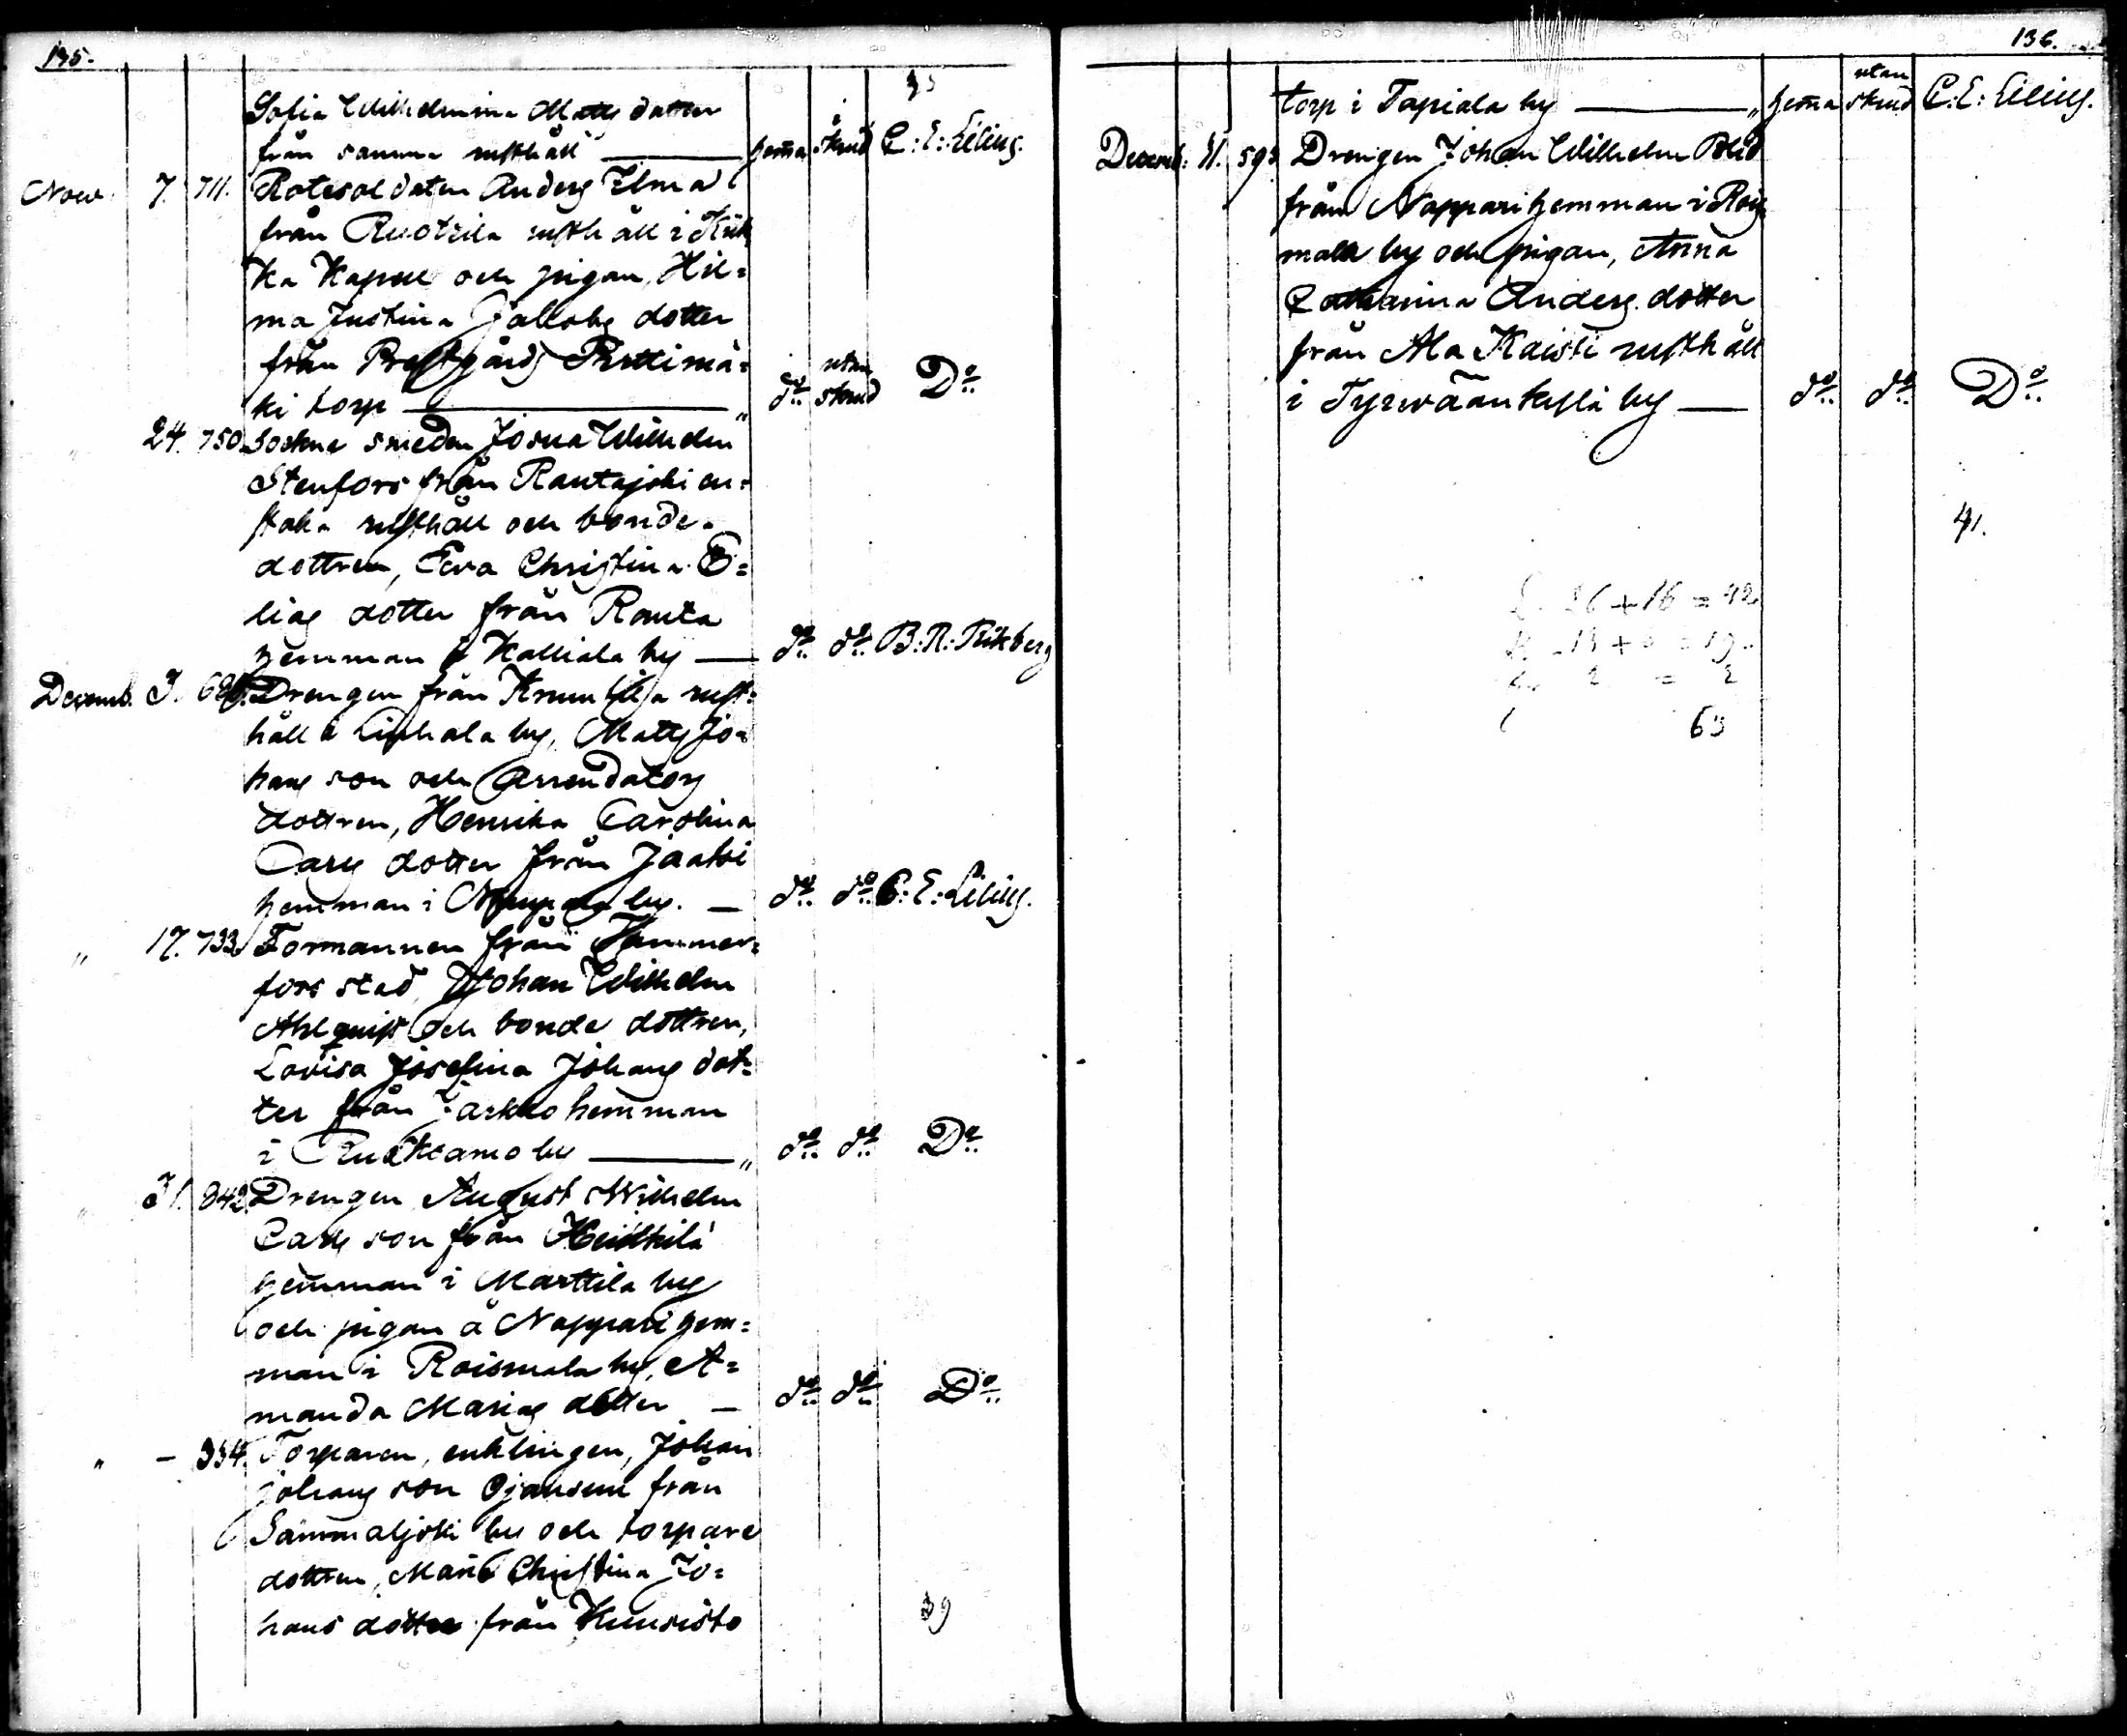 135.
Sofia Wilhelmina Matts dotter
från samma rusthåll — hemma i skrud C: E: Lilius.
Nov. 7. 711. Rotesoldaten Anders Ilmal
från Ruotsila rusthåll i Kiik
ka Kapell och pigan, Hil=
ma Justina Jakobs dotter
från Prestgårds Perttimä=
ki torp — do utan skrud Do
" 24. 750. Sockne smeden Josua Wilhelm
Stenfors från Rautajoki en=
staka rusthåll och bonde
dottren, Eva Christina E=
lias dotter från Ranta
hemman i Kalliala by — do do B: R: Rikberg
Decemb. 3. Drengen från rust=
håll i Liuhala by, Matts Jo=
hans son och Arrendators
dottren, Henrika Carolina
Carls dotter från Jaakoi
hemman i by. — do do C: E: Lilius.
" 17. 733. Formannen från Hammer=
fors stad, Johan Wilhelm
Ahlqvist och bonde dottren,
Lovisa Josefina Johans dot=
ter från Jaakko hemman
i by — do do Do
31. 842. Drengen August Wilhelm
Carls son från Heikkilä
hemman i Marttila by
och pigan å Nappari hem=
man i Roismala by, A=
manda Marias dotter — do do Do
" — 354. Torparen, enklingen, Johan
Johans son Ojansuu från
Sammaljoki by och torpare
dottren, Maria Christina Jo=
hans dotter från Kuusisto
39
136.
torp i Tapiala by — hemma utan skrud C: E: Lilius.
Decemb: 31. 593. Drengen Johan Wilhelm
från Nappari hemman i Rois
mala by och pigan, Anna
Catharina Anders dotter
från Ala Kaisti rusthåll
i Tyrwäänkylä by — do do Do
41.
26 + 16 = 42
19
2 = 2
63